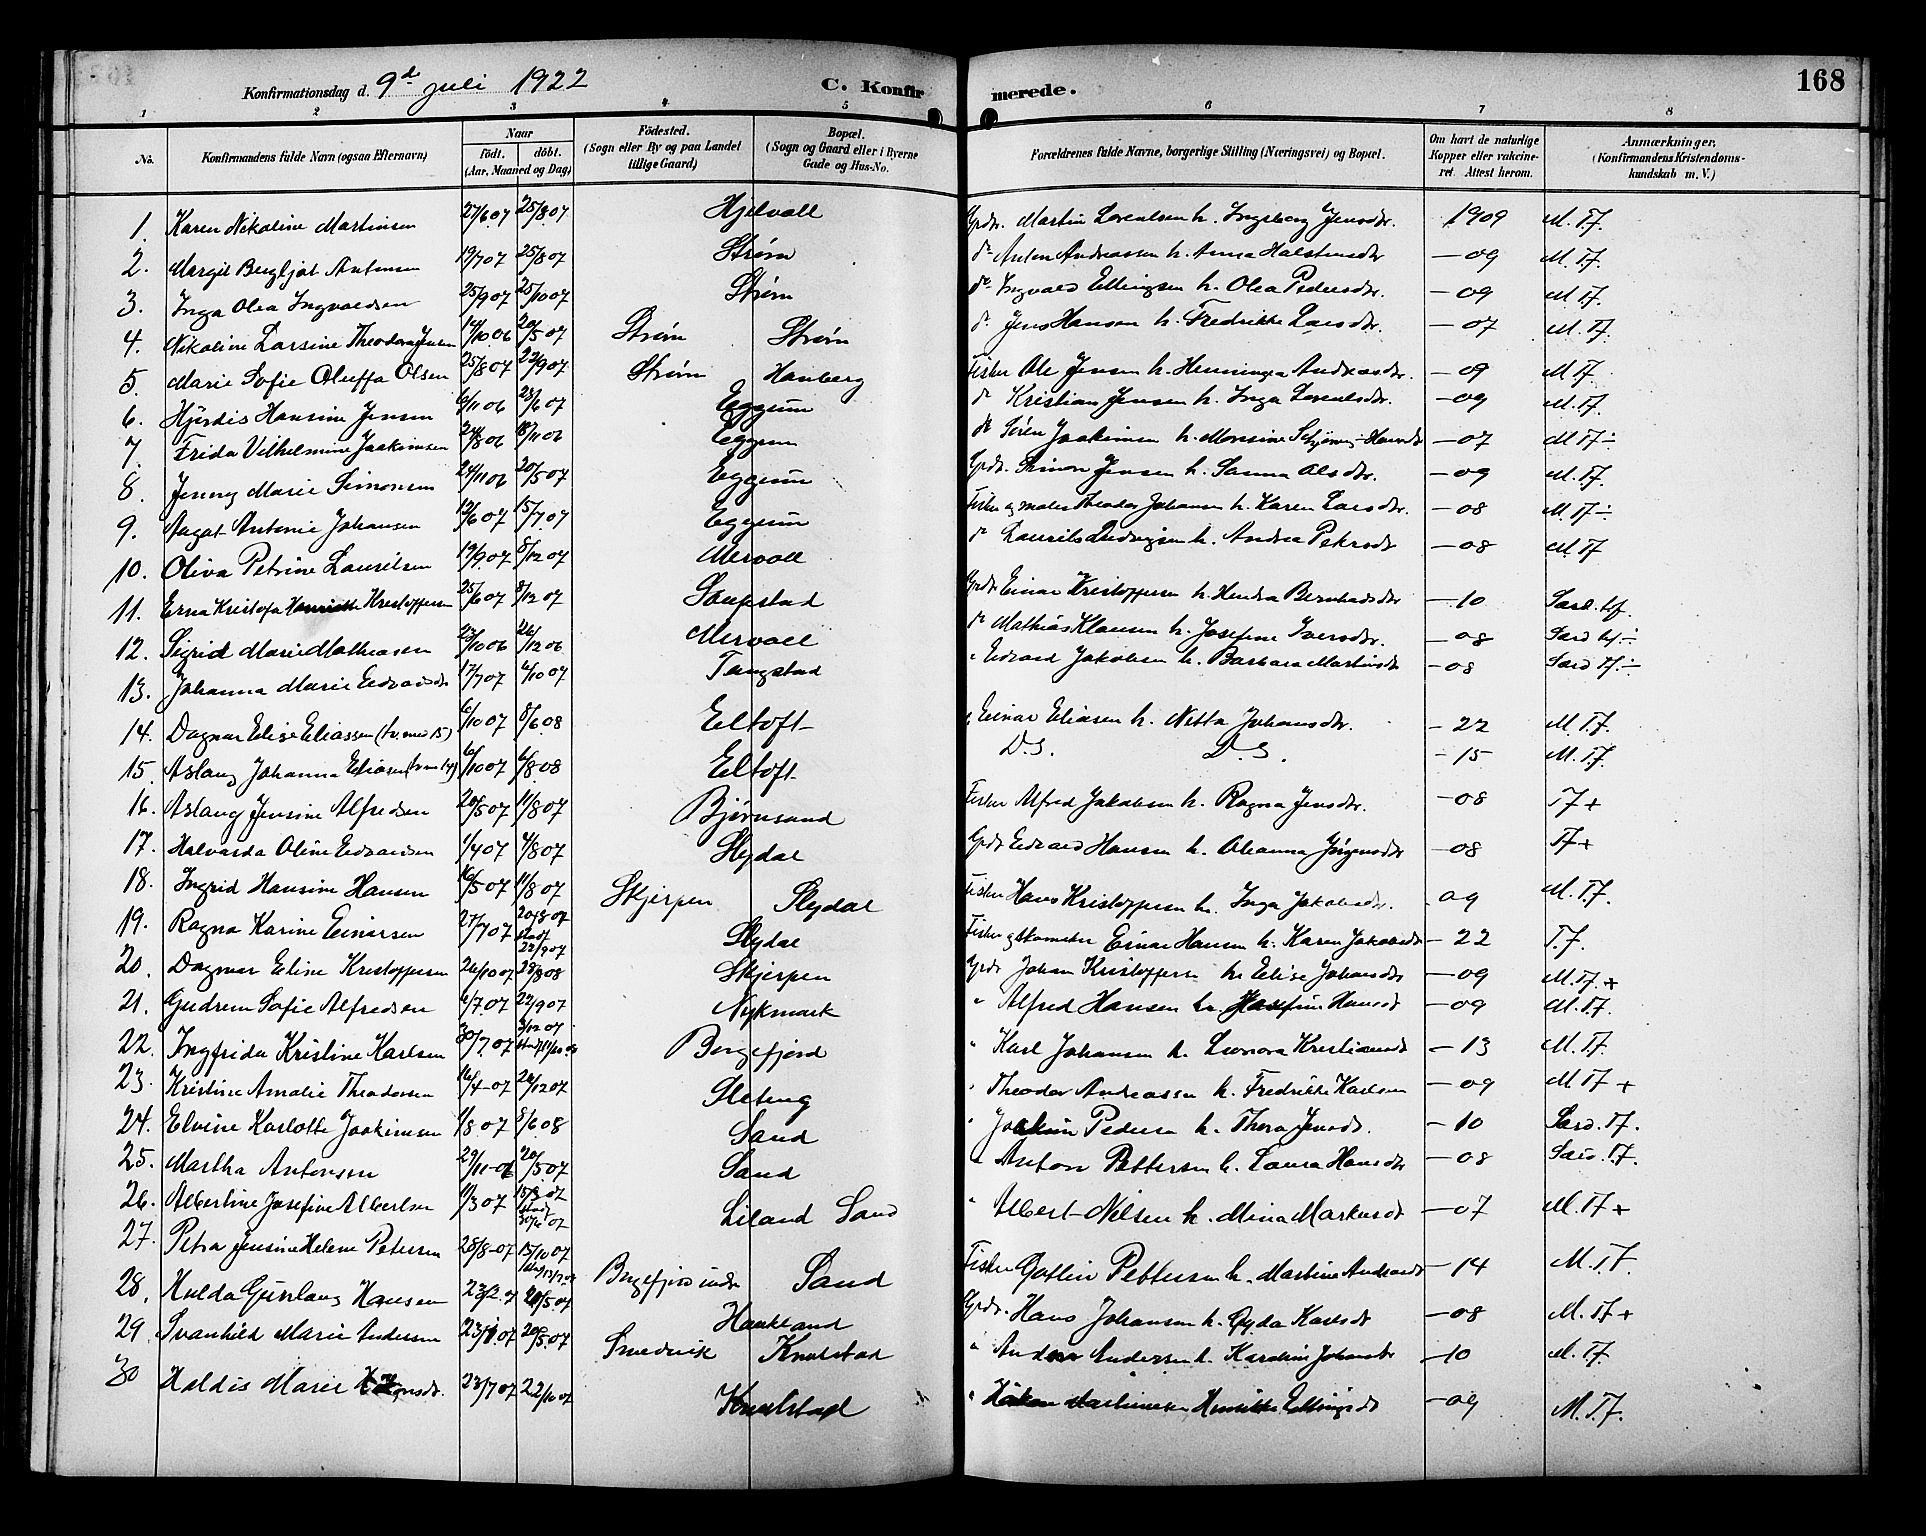 Konfirmationsdag d. 9d juli 1922 C. Konfir merede. 168
1 2 3 4 5 6 7 8
No. Konfirmandens fulde Navn (ogsaa Efternavn) Naar Födt. döbt. (Aar, Maaned og Dag) Födested. (Sogn eller By og paa Landet tillige Gaard) Bopæl. (Sogn og Gaard eller i Byerne Gade og Hus-No. Forældrenes fulde Navne, borgerlige Stilling (Næringsvei) og Bopæl. Om havt de naturlige Kopper eller vaccineret. Attest herom. Anmærkninger, (Konfirmandens Kristendomskundskab m. V.)
1. Karen Nikoline Martinsen 27/6.07 25/8.07 Hjelvoll Grdr. Martin Lorentsen h. Ingeborg Jensdr. 1909 M. Tf.
2. Margit Bergljot Antonsen 19/7 07 25/8 07 Strøm do Anton Andreassen h. Anna Halstensdr - 09 M. Tf.
3. Inga Olea Ingvaldsen 25/9 07 25/10 07 Strøm do Ingvald Ellingsen h. Olea Pedersdr. - 09 M Tf.
4. Nikoline Larsine Theodora Jensen 14/10 06 20/5 07 Strøm Strøm d. Jens Hansen h. Fredrikke Larsdr. - 07 M Tf.
5. Marie Sofie Oluffa Olsen 25/8 07 22/9 07 Strøm Hanberg Fisker Ole Jensen h. Henninga Andreasdr. - 09 M Tf.
6. Hjørdis Hansine Jensen 6/11 06 23/6 07 Eggum do Kristian Jensen h. Inga Lorentsdr. - 09 M. Tf.
7. Frida Vilhelmine Joakimsen 24/8 06 18/11 06 Eggum do Søren Joakimsen h. Monsine - 07 M Tf÷
8. Jenny Marie Simonsen 24/11 06 20/5 07 Eggum Grdr. Simon Jensen h. Sanna Olsdr. - 09 M Tf.
9. Aagot Antonie Johansen 12/6 07 15/7 07 Eggum Fisker og maler Theodor Johansen h. Karen Larsdr. - 08 M. Tf÷
10. Oliva Petrine Lauritsen 19/9.07 8/12 07 Mervoll do Laurits Ludvigsen h. Andrea Petersdr - 08 M Tf
11. Erna Kristofa Henriette Kristoffersen 25/6 07 8/12 07 Saupstad Grdr Einar Kristoffersen h. Hendra Bernhardsdr - 10 Særd. tf.
12. Sigrid Marie Mathiasen 23/10 06 26/12 06 Mervoll do Mathias Klausen h. Josefine Iversdr. - 08 Særd tf÷
13. Johanna Marie Edvardsdr 17/7 07 4/10 07 Tangstad " Edvard Jakobsen h. Barbara Martinsdr - 08 Særd Tf÷
14. Dagmar Elise Eliassen (tv. med 15) 6/10 07 8/6.08 Eltoft " Einar Eliasen h. Netta Johansdr. - 22 M. Tf.
15. Aslaug Johanna Eliasen (tv. med 14) 6/10 07 6/8.08 Eltoft D.S. D.S. - 15 M. Tf.
16. Aslaug Jensine Alfredsen 20/5 07 11/8 07 Bjørnsand Fisker Alfred Jakobsen h. Ragna Jensdr. - 08 Tf +
17. Halvarda Oline Edvardsen 1/4 07 4/8 07 Slydal Grdr Edvard Hansen h. Oleanna Jørgensdr - 08 Tf +
18. Ingrid Hansine Hansen 16/5 07 11/8 07 Skjerpen Slydal Fisker Hans Kristoffersen h. Inga Jakobsdr. 09 M. Tf.
19. Ragna Karine Einarsen 27/7 07 20/8 07 stadf 22/9 07 Slydal Fisker og Einar Hansen h. Karen Jakobsdr - 22 T.f.
20. Dagmar Eline Kristoffersen 26/10 07 28/3 08 Skjerpen Grdr Johan Kristoffersen h. Elise Johansdr - 09 M. Tf. +
21. Gudrun Sofie Alfredsen 6/7.07 22/9 07 Nykmark " Alfred Hansen h. Josefine Hansdr - 09 M. Tf.
22. Ingfrida Kristine Karlsen 30/7.07 3/12 07 Borgefjord " Karl Johansen h. Leonora Kristiansdr - 13 M. Tf.
23. Kristine Amalie Theodorsen 16/4-07 26/12 07 Sleteng " Theodor Andreassen h. Fredrikke Karlsen - 09 M Tf +
24. Elvine Karlotte Joakimsen 1/8.07 8/6.08 Sand " Joakim Pedersen h. Thora Jensdr. - 10 Særd. Tf.
25. Martha Antonsen 29/11-06 20/5.07 Sand " Anton Pettersen h. Laura Hansdr - 08 Særd. Tf.
26. Albertine Josefine Albertsen 11/3 07 15/3.07 stadf 30/6 07 Liland Sand " Albert Nilsen h. Mina Markusdr - 07 M. Tf +
27. Petra Jensine Helene Petersen 28/8-07 13/10 07 Borgefjord indre Sand Fisker Gottlin Pettersen h. Martine Andreasdr - 14 M. T.F.
28. Hulda Gunlaug Hansen 23/2.07 20/5 07 Haukland Grdr. Hans Johansen h. Gyda Karlsdr - 08 M. Tf +
29. Svanhild Marie Andersen 23/1.07 20/5.07 Smedvik Knutstad " Anders Andersen h. Karoline Johansdr - 10 M. Tf.
30 Haldis Marie 23/7 07 22/10 07 Knutstad " Håkon Martinsen Henrikke Ellingsdr - 09 M. T.f.